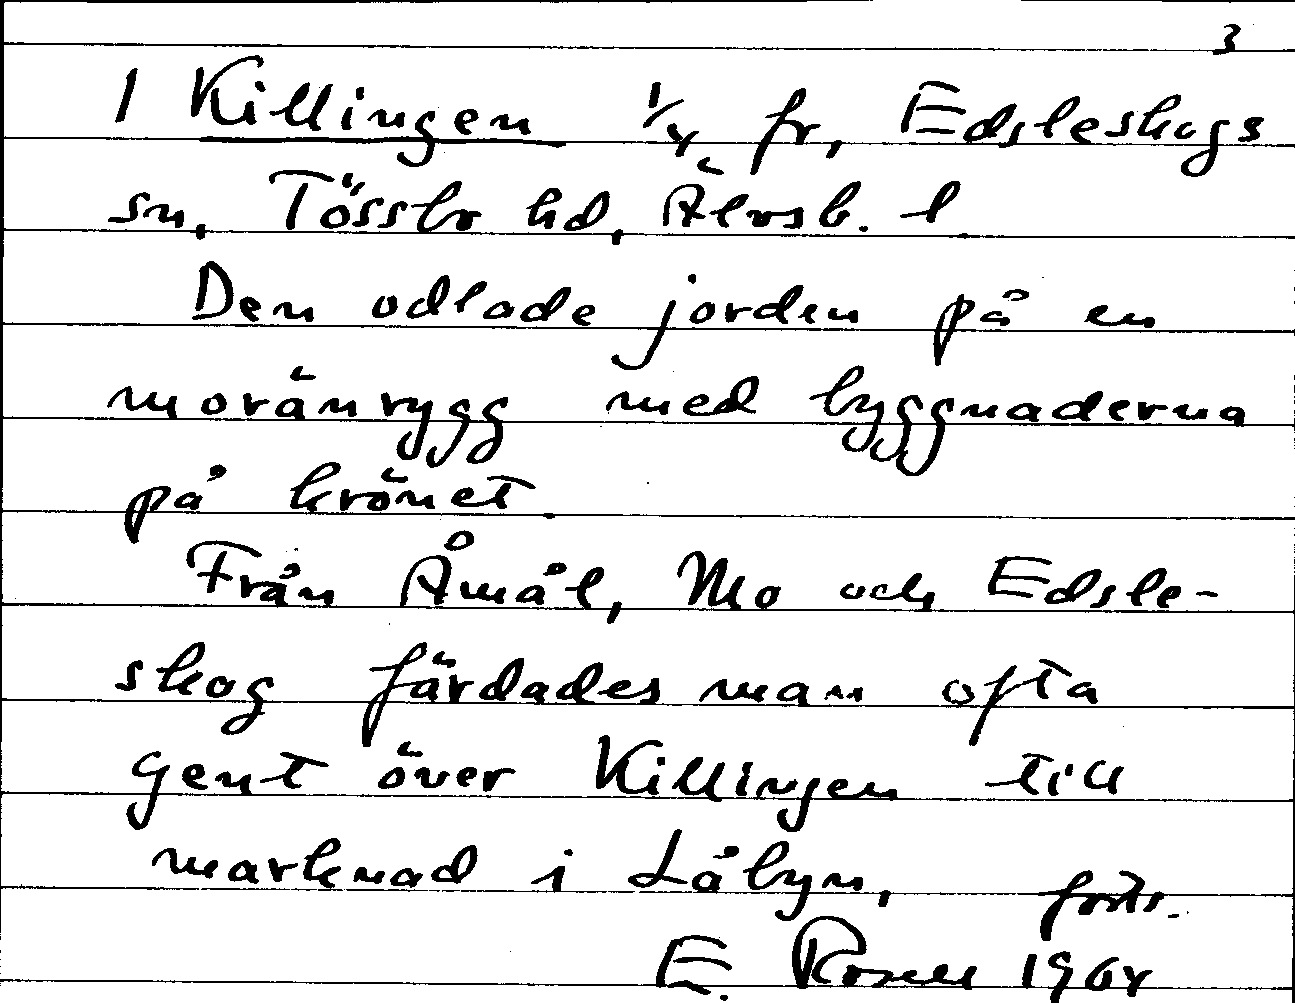 3
1 Killingen 1/4 fr, Edsleskogs
sn, Tössbo hd, Älvsb. l.
Den odlade jorden på en
moränrygg med byggnaderna
på krönet.
Från Åmål, Mo och Edsle-
skog färdades man ofta
gent över Killingen till
marknad i Låbyn, forts.
E. Rosell 1964